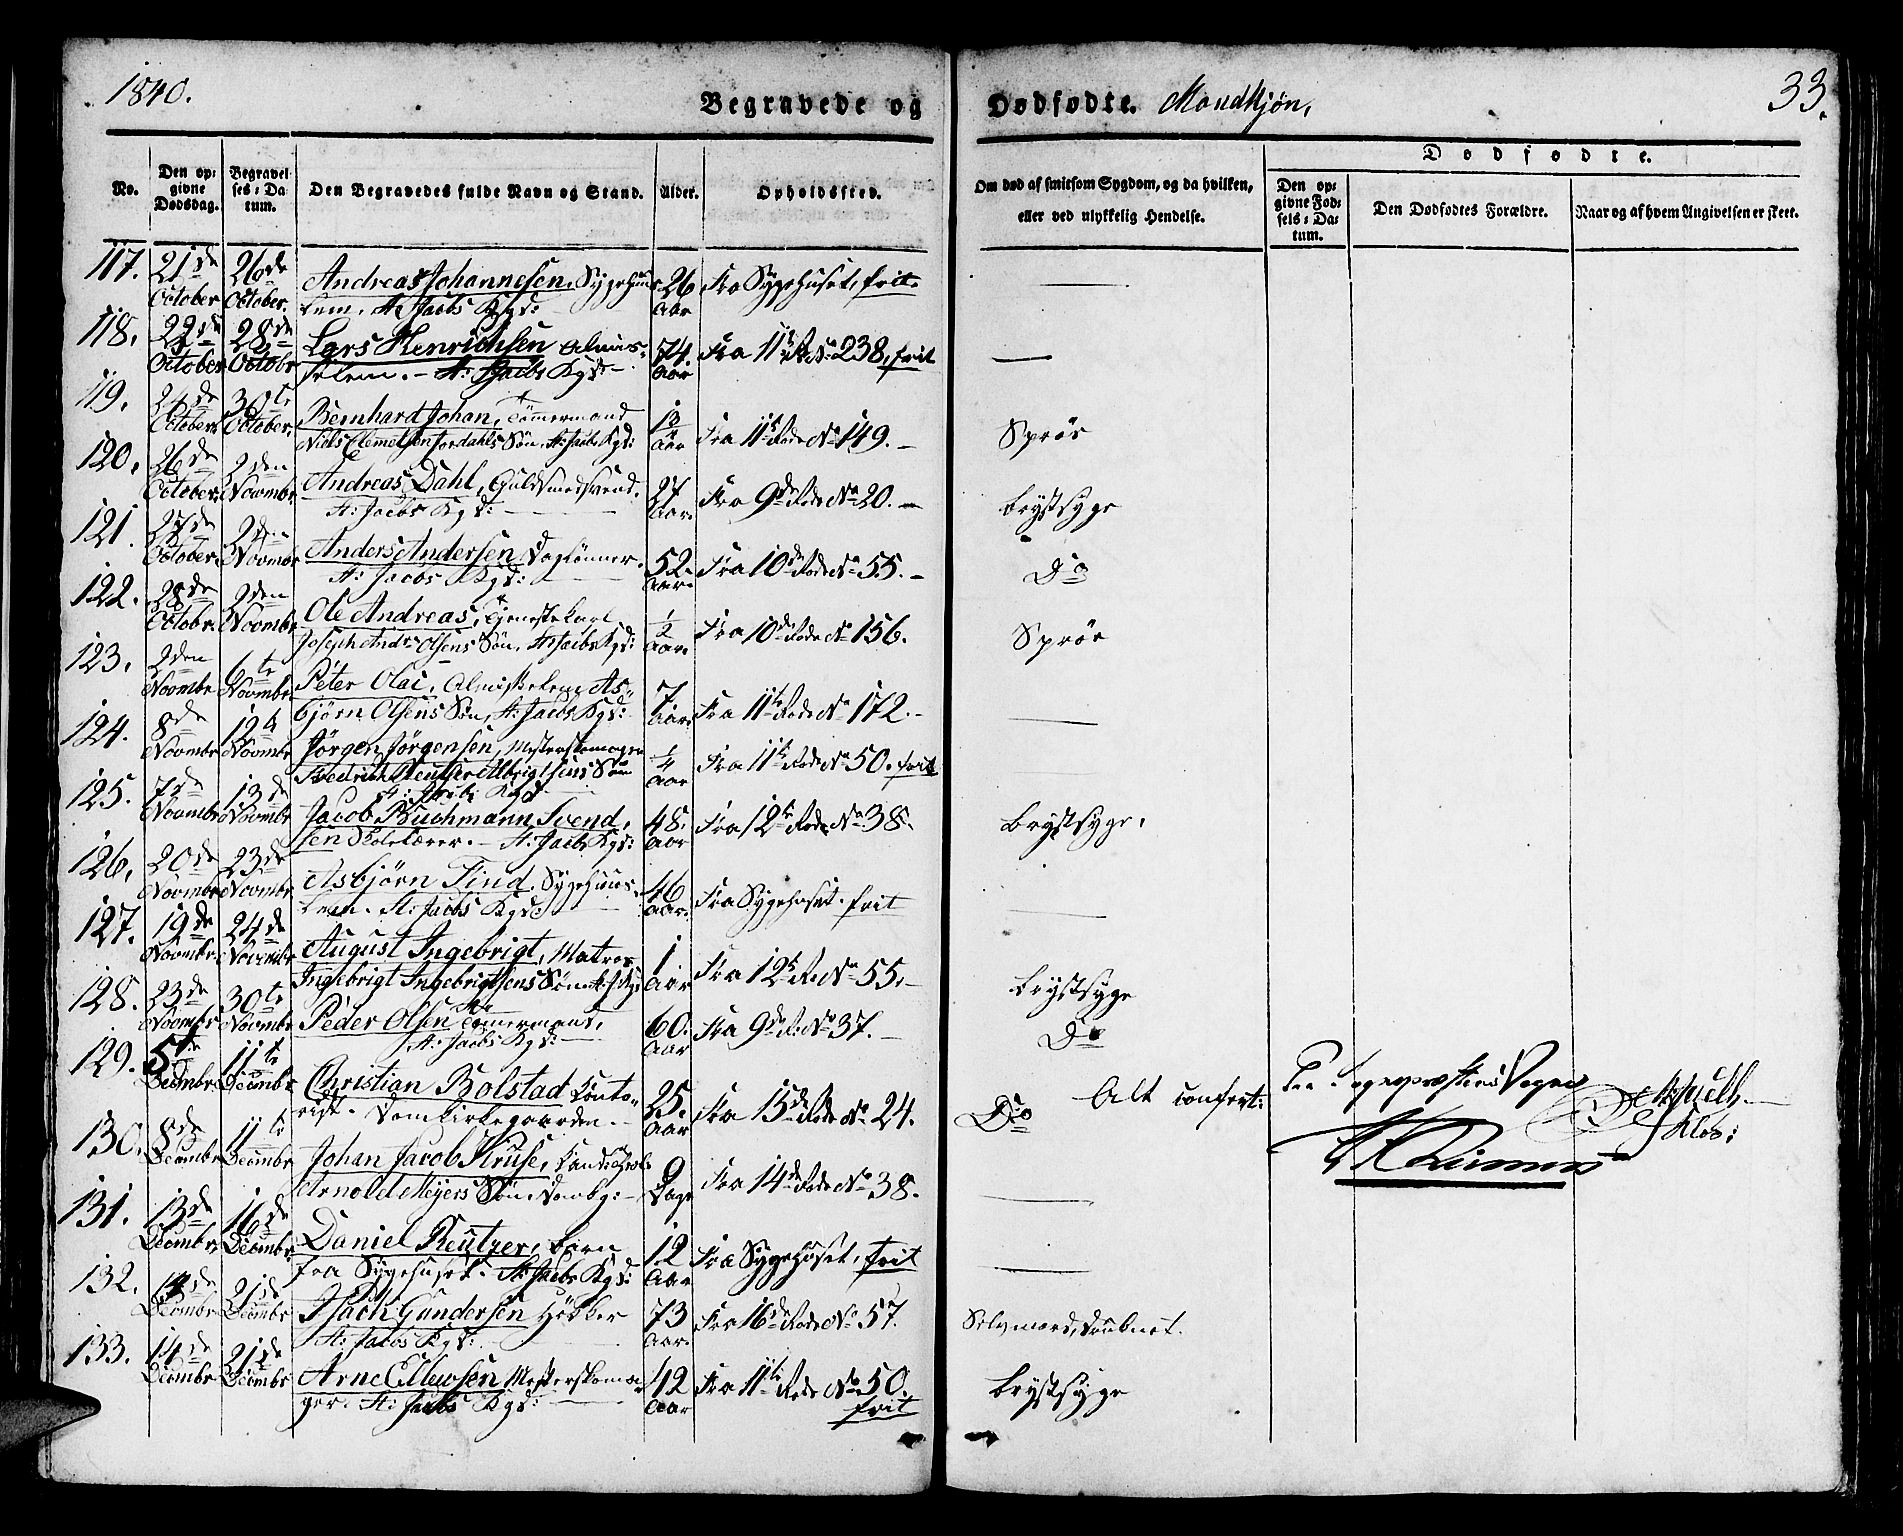 1840.
Begravede og Dødfødte. Mandkjøn,
33.
No.
Den opgivne Dødsdag.
Begravelses-Datum.
Den Begravedes fulde Navn og Stand.
Alder.
Opholdssted.
Om død af smitsom Sygdom, og da hvilken, eller ved ulykkelig Hendelse.
Dødfødte.
Den opgivne Fødsels-Datum.
Den Dødfødtes Forældre.
Naar og af hvem Angivelsen er skeet.
117. 21de October 26de October. Andreas Johannesen, Sygehuus 26 Aar Fra Sygehuset, frit.
lem. St: Jacobs Kgd:
118. 22de October 28de October Lars Henrichsen Almis- 74 Aar Fra 11te R. No 238, frit
selem. - St: Jacobs Kgd -
119. 24de October 30te October. Bernhard Johan, Tømmermand 13 Aar Fra 11te Rode No 149. - Sprøs
Niels Clemetsen Jordahls Søn, St: Jacobs Kgd:
120. 26de October 2den Novembr Andreas Dahl, Guldsmedsvend. 27 Aar. Fra 9de Rode No 20. - brystsyge
St: Jacobs Kgd: -
121. 27de October 2den Novembr Anders Andersen Daglønner. 52 Aar. Fra 10de Rode No 55. - Do
St: Jacobs Kgd: -
122. 28de Octobr. 2den Novembr Ole Andreas, Tjenestekarl 1/2 Aar. Fra 10de Rode No 156. Sprøs
Joseph Andr. Olsens Søn, St: Jacobs Kgd:
123. 2den Novembr 6te Novembr Peter Olai, Almiskelem As- 7 Aar. Fra 11te Rode No 172. -
bjørn Olsens Søn, St: Jacobs Kgd:
124. 8de Novembr 12te Novembr Jørgen Jørgensen, Mesterskomager 1/4 Aar Fra 11te Rode No 50. frit
Fredrich Reutzer Albrigtsens Søn
St: Jacobs Kgd
125. 7de Novembr 13de Novembr Jacob Buchmann Svend, 48. Aar Fra 12te Rode No 38. brystsyge,
sen Skolelærer. - St: Jacobs Kgd:
126. 20de Novembr 23de Novembr Asbjørn Find, Sygehuus- 46 Aar. Fra Sygehuset. frit
lem. St: Jacobs Kgd:
127. 19de Novembr. 24de Novembr August Ingebrigt, Matros 1 Aar Fra 12te R. No 55. - brystsyge
Ingebrigt Ingebrigtsens Søn St: J. Kg:
128. 23de Novembr 30te Novembr Peder Olsen Tømmermand, 60. Aar Fra 9de R. No 37. - Do
St: Jacobs Kgd: -
129. 5te Decembr. 11te Decembr Christian Bolstad Conto- 25. Aar Fra 15de Rode No 24. Do
rist. - Domkirkegaarden. -
Alt conferet:
130. 8de Decembr 11te Decembr Johan Jacob Kruse, 9 Dage Fra 14de Rode No 38.
Arnold Meyers Søn, Domkg: -
131. 13de Decembr. 16de Decembr Daniel Reutzer, barn 12 Aar Fra Sygehuset, frit
fra Sygehuset. St: Jacobs Kgd:
132. 14de Decembr 21de Decembr Isach Gundersen Høkker 73 Aar. Fra 16de Rode No 57. Selvmord, druknet.
St: Jacobs Kgd:
133. 14de Decembr 21de Decembr Arne Ellewsen Mesterskoma- 42 Aar Fra 11te Rode No 50. frit brystsyge
ger. St: Jacobs Kgd: -